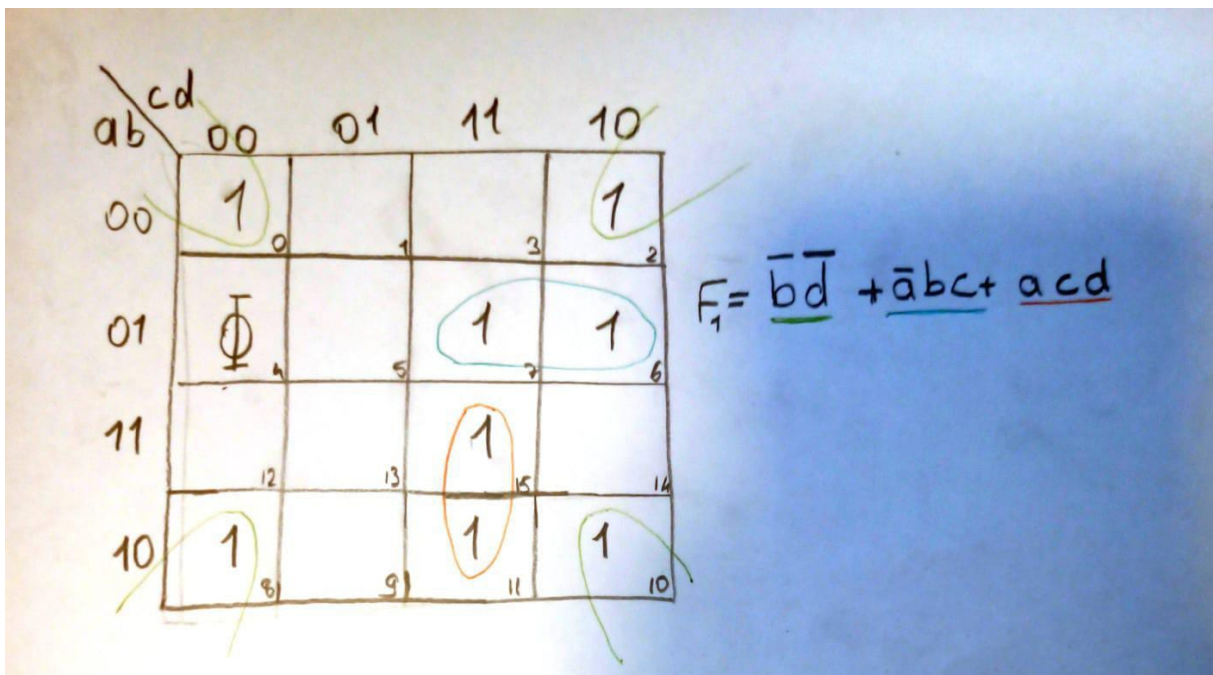 cd
ab 00 01 11 10
00 1 0 1 3 1 2
01 Φ 4 5 1 7 1 6
11 12 13 1 15 14
10 1 8 9 1 11 1 10
F₁= b̄ d̄ + ā b c + a c d